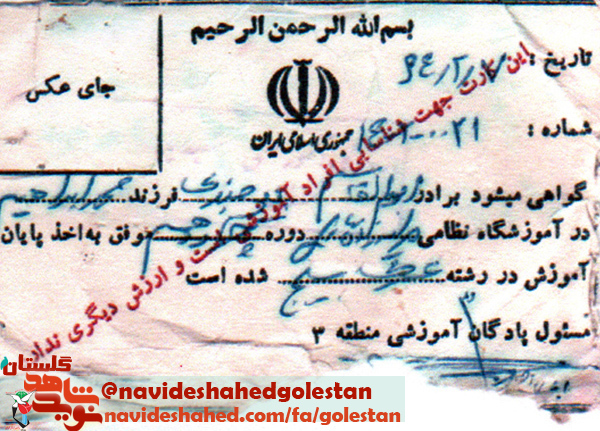 بسم الله الرحمن الرحیم
جای عکس
جمهوری اسلامی ایران
تاریخ :
شماره :
این کارت جهت شناسایی افراد آموزشی است و ارزش دیگری ندارد
گواهی میشود برادر ابوالقاسم فرزند محمد ابراهیم
در آموزشگاه نظامی دوره موفق به اخذ پایان
آموزش در رشته شده است
مسئول پادگان آموزشی منطقه ۳
گلستان
نوید شاهد
@navideshahedgolestan
navideshahed.com/fa/golestan